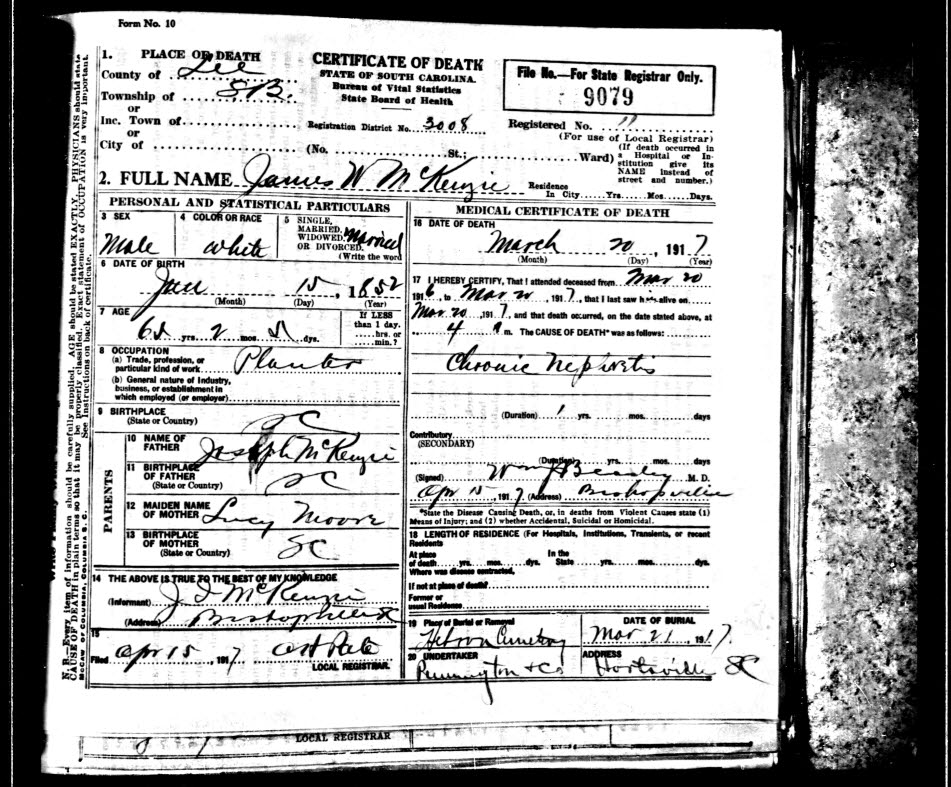 Form No. 10
1. PLACE OF DEATH
County of Lee
Township of S.B.
or
Inc. Town of
or
City of
CERTIFICATE OF DEATH
STATE OF SOUTH CAROLINA.
Bureau of Vital Statistics
State Board of Health
Registration District No. 3008
File No.—For State Registrar Only.
9079
Registered No. 11
(For use of Local Registrar)
(No. St.; Ward)
(If death occurred in
a Hospital or In-
stitution give its
NAME instead of
street and number.)
2. FULL NAME James W McKenzie
Residence
In City Yrs. Mos. Days.
PERSONAL AND STATISTICAL PARTICULARS
3 SEX
Male
4 COLOR OR RACE
White
5 SINGLE,
MARRIED,
WIDOWED, Married
OR DIVORCED.
(Write the word
6 DATE OF BIRTH
Jan 15, 1852
(Month) (Day) (Year)
7 AGE
65 yrs. 2 mos. 5 dys.
If LESS
than 1 day.
hrs. or
min.?
8 OCCUPATION
(a) Trade, profession, or
particular kind of work Planter
(b) General nature of Industry,
business, or establishment in
which employed (or employer)
9 BIRTHPLACE
(State or Country) SC
PARENTS
10 NAME OF
FATHER Joseph McKenzie
11 BIRTHPLACE
OF FATHER
(State or Country) SC
12 MAIDEN NAME
OF MOTHER Lucy Moore
13 BIRTHPLACE
OF MOTHER
(State or Country) SC
14 THE ABOVE IS TRUE TO THE BEST OF MY KNOWLEDGE
(Informant) McKenzie
(Address) Bishopville SC
15
Filed Apr 15, 1917
LOCAL REGISTRAR.
MEDICAL CERTIFICATE OF DEATH
16 DATE OF DEATH
March 20, 1917
(Month) (Day) (Year)
17 I HEREBY CERTIFY, That I attended deceased from Mar 20
1916 to Mar 20, 1917, that I last saw him alive on
Mar 20, 1917, and that death occurred, on the date stated above, at
4 m. The CAUSE OF DEATH* was as follows:
Chronic Nephretis
(Duration) 1 yrs. mos. days
Contributory
(SECONDARY)
(Duration) yrs. mos. days
(Signed) M. D.
Apr 15, 1917 (Address) Bishopville
*State the Disease Causing Death, or, in deaths from Violent Causes state (1)
Means of Injury; and (2) whether Accidental, Suicidal or Homicidal.
18 LENGTH OF RESIDENCE (For Hospitals, Institutions, Transients, or recent
Residents
At place In the
of death yrs. mos. dys. State yrs. mos. dys.
Where was disease contracted,
If not at place of death?
Former or
usual Residence
19 Place of Burial or Removal
Hebron Cemetery
DATE OF BURIAL
Mar 21, 1917.
20 UNDERTAKER
Pennington & Co
ADDRESS
Hartsville SC
N. B.—Every item of information should be carefully supplied. AGE should be stated EXACTLY. PHYSICIANS should state
CAUSE OF DEATH in plain terms so that it may be properly classified. Exact statement of OCCUPATION is very important.
See Instructions on back of certificate.
McCAW OF COLUMBIA, COLUMBIA S. C.
LOCAL REGISTRAR